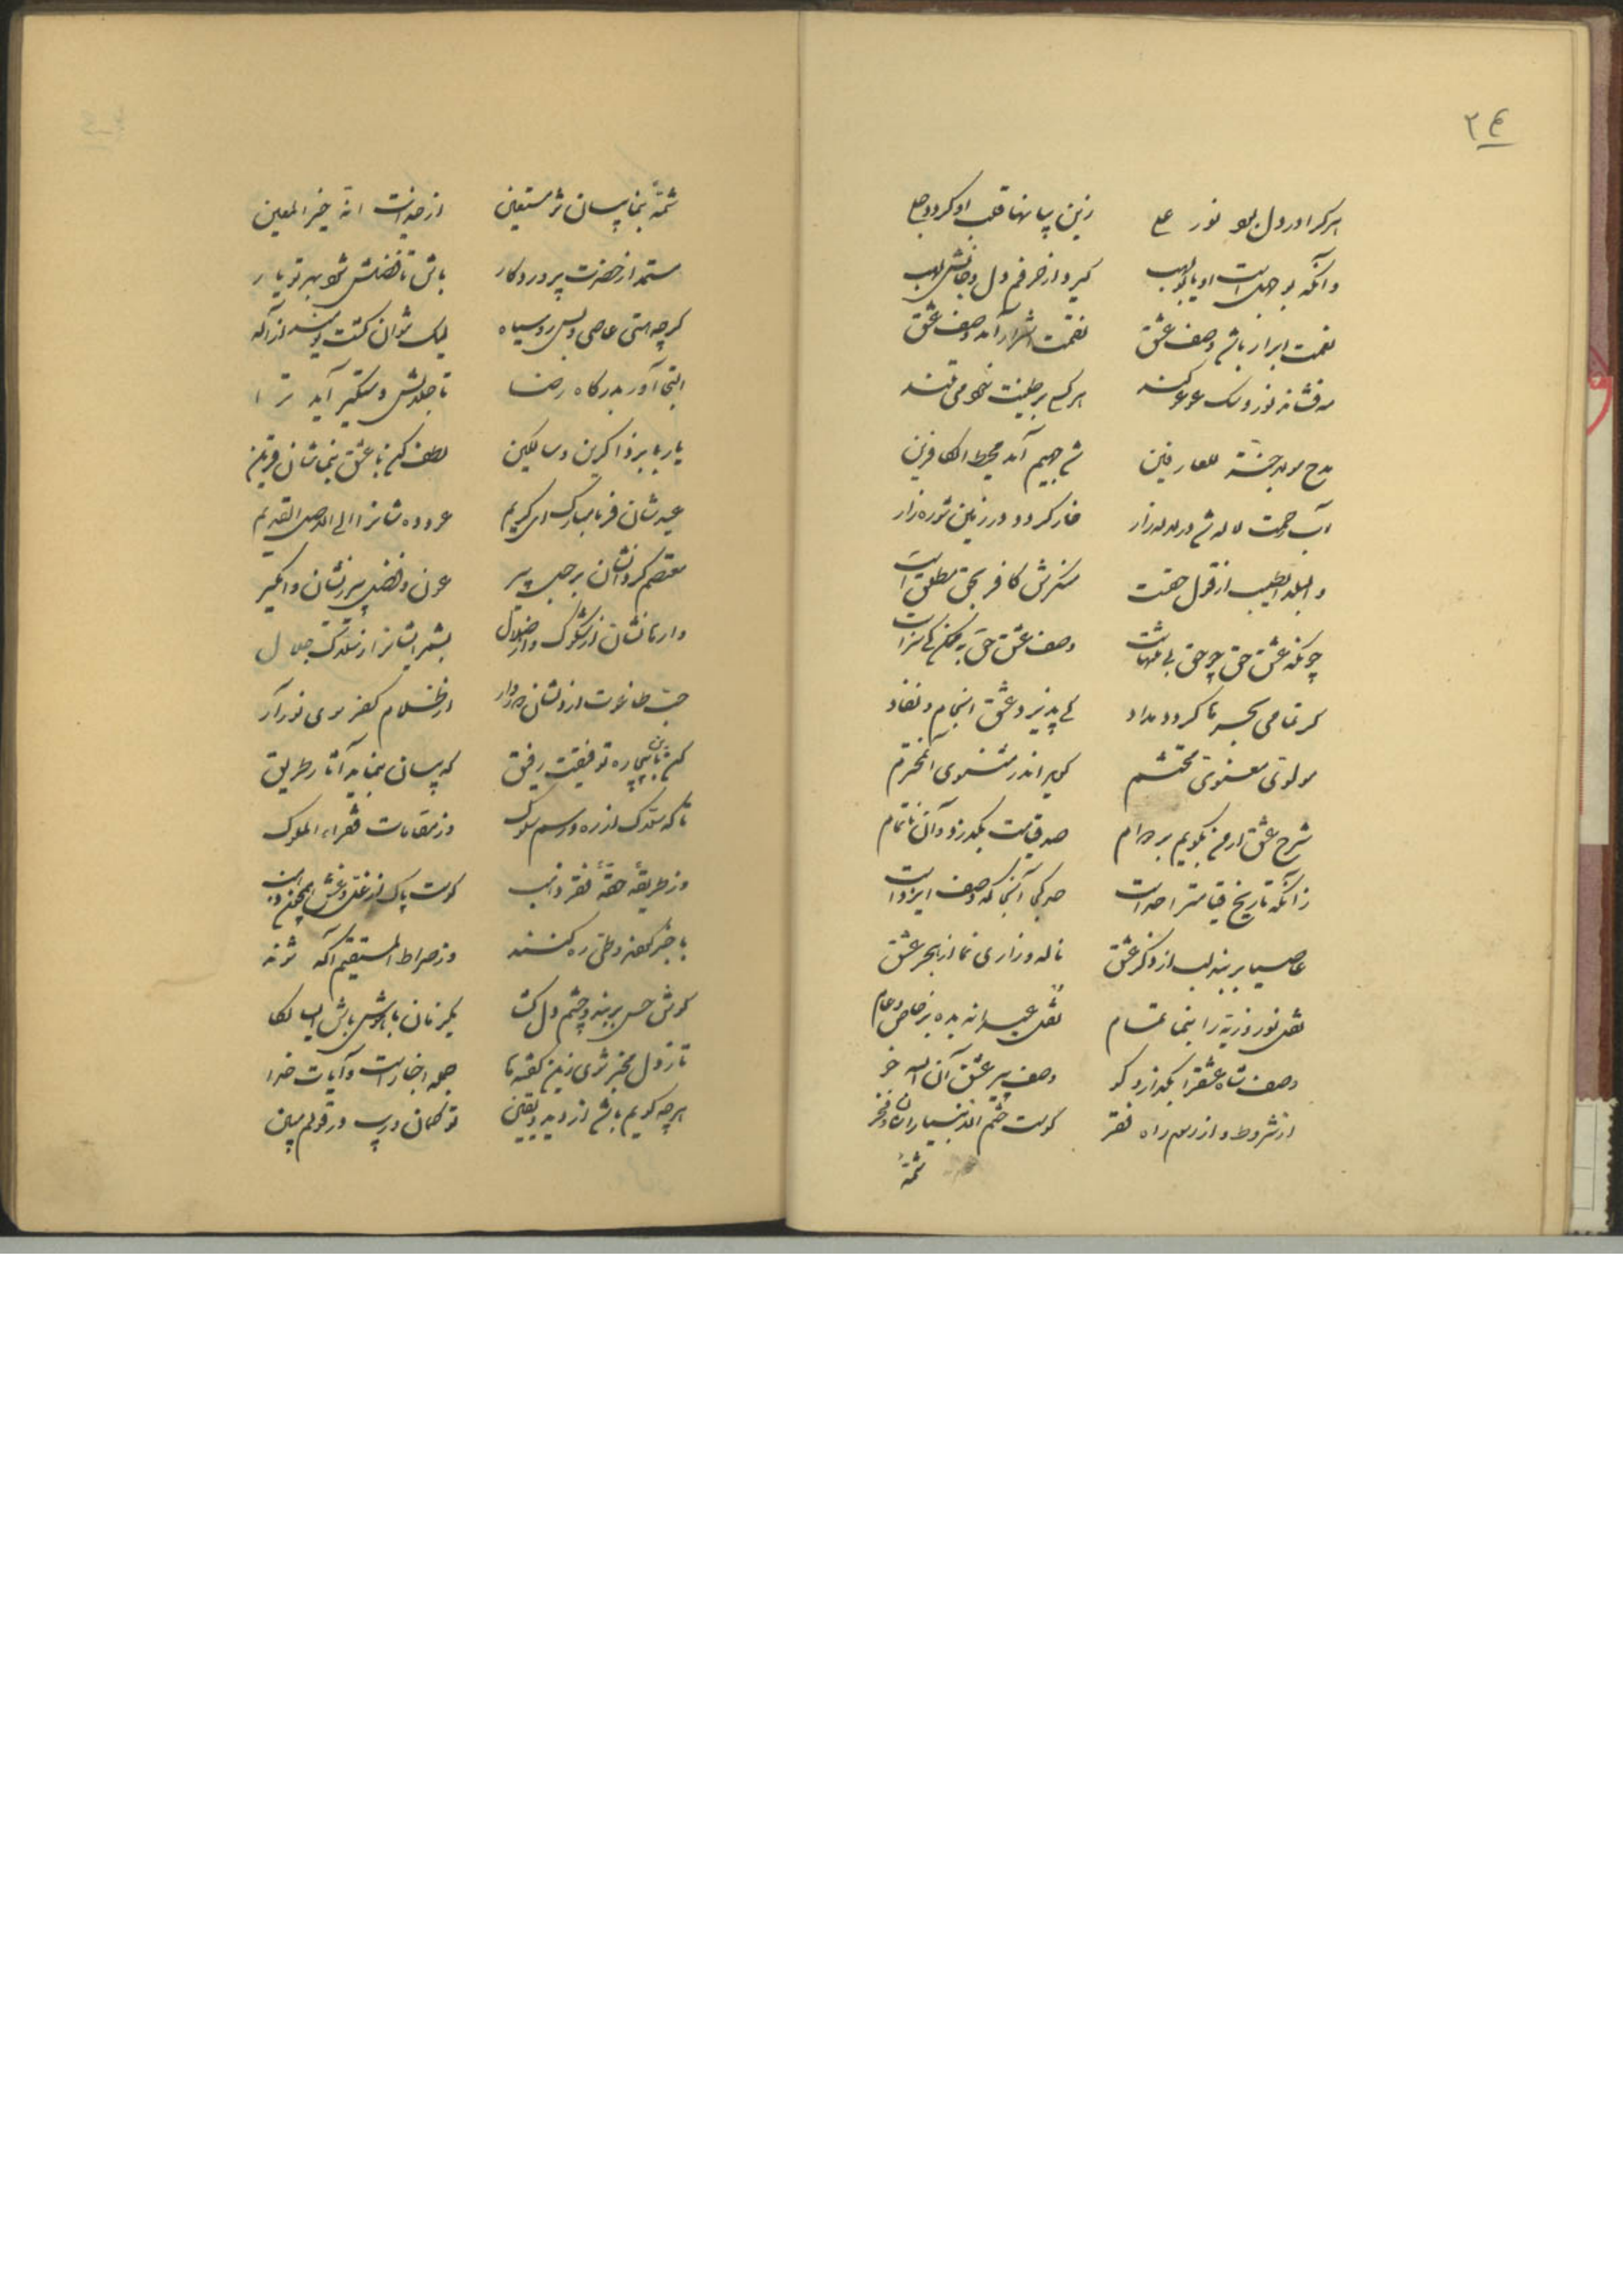 ۲۴
هر کرا در دل بود نور علی زین بیانها قلب او گردد جلی
وانکه بو جهل است او یا بولهب گیرد از حرفم دل و جانش لهب
نعمت ابرار باشد وصف عشق نقمت اشرار آمد وصف عشق
مه فشاند نور و سگ عوعو کند هر کسی بر طینت خود می تند
مدح مولا جنة للعارفین شد جهیم آمد محیط الکافرین
آب رحمت لاله شد در لاله زار خار گردد در زمین شوره زار
والبلد الطیب از قول حقت منکرش کافر بحق مطلق است
چونکه عشق حق چو حق بی منتهاست وصف عشق حق به ممکن کی سزاست
گر تمامی بحر ها گردد مداد کی پذیرد عشق انجام و نفاد
مولوی معنوی محتشم گوید اندر مثنوی المحترم
شرح عشق ار من بگویم بر دوام صد قیامت بگذرد وآن ناتمام
زانکه تاریخ قیامت را حد است حد کجا آنجا که وصف ایزد است
عاصیا بربند لب از ذکر عشق ناله و زاری نما از بحر عشق
نقل نوروزیه را بنما تمام نقل عیدانه بده بر خاص و عام
وصف شاه عشق را بگذار و گو وصف پیر عشق آن الله خو
از شروط و از رسم راه فقر گوست ختم الانبیا را زان فخر
شمهٔ
شمهٔ بنما بیان شو مستعین از خداوند انه خیر المعین
مستمد از حضرت پروردگار باش تا فضلش شود بهر تو یار
گرچه هستی عاصی و بس روسیاه لیک نتوان گشت نومید از اله
التجا آور بدرگاه رضا تا جلالش دستگیر آید ترا
یا رب این ذاکرین و سالکین لطف کن با عشق بنماشان قرین
عیدشان فرما مبارک ای کریم عود ده شانرا الی الاصل القدیم
معتصم گردانشان بر حبل پیر عون و فضل پیر زیشان وامگیر
وارهانشان از شکوک و از ضلال بشمر ایشانرا ز سلاک جلال
حب طاغوت از دلشان دور دار از ظلام کفر سوی نور آر
کن باین بیچاره توفیقت رفیق که بیان بنماید آثار طریق
تا که سلاک از ره و رسم سلوک وز مقامات فقراء الملوک
وز طریقه حقهٔ فقر و انیب گوست پاک از غل و غش
با خبر گردند وطی ره کنند وز صراط المستقیم آگه شوند
گوش حس بربند و چشم دل گشا یکزمان با هوش باش ای لکا
تا ز دل مخبر شوی زین گفته ها جمله اخبار است و آیات خدا
هر چه گویم باشد از دید و یقین تو گمان و ریب در قولم مبین